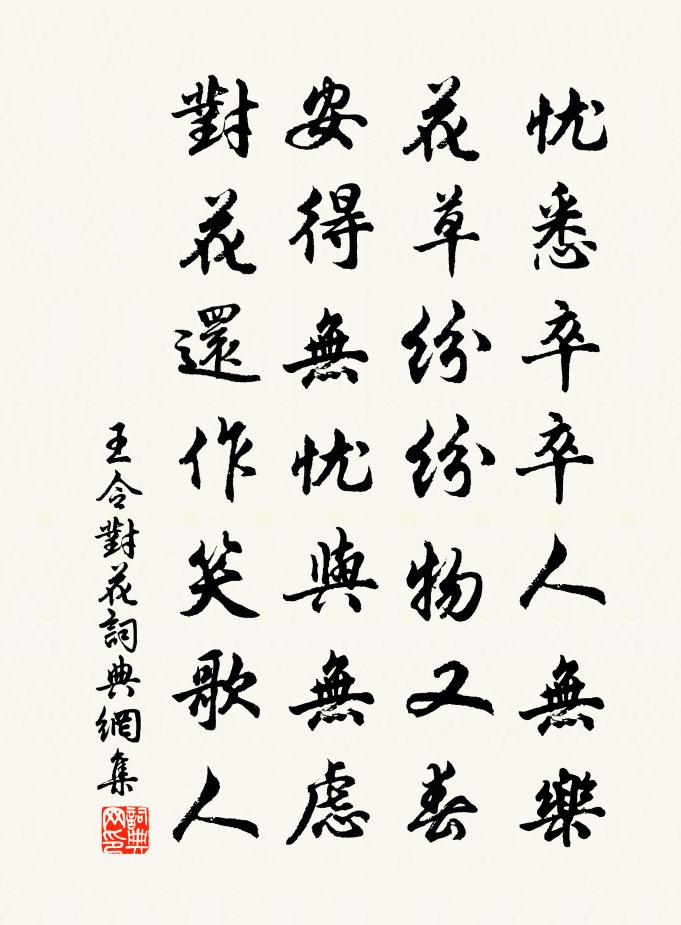 忧悉卒卒人無樂
花草紛紛物又春
安得無忧與無慮
對花還作笑歌人
王令對花詞典網集
詞典網印